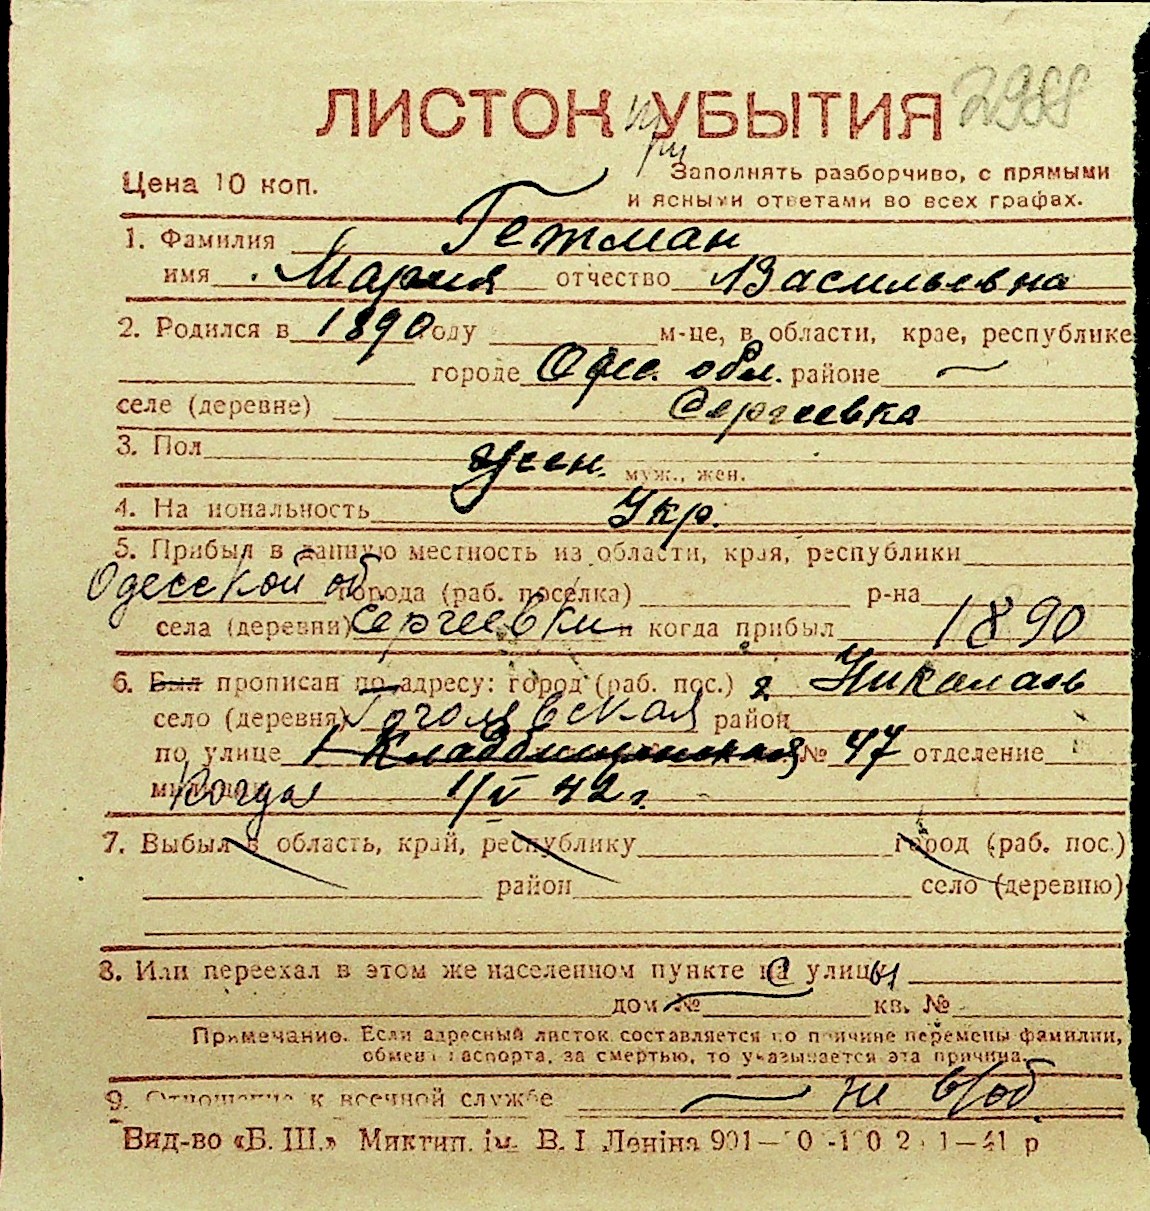 ЛИСТОК при УБЫТИЯ 2988
Цена 10 коп.
Заполнять разборчиво, с прямыми
и ясными ответами во всех графах.
1. Фамилия Гетман
имя Мария отчество Васильевна
2. Родился в 1890 году м-це, в области, крае, республике
городе Одес. обл. районе —
селе (деревне) Сергеевка
3. Пол жен.
муж., жен.
4. Национальность Укр.
5. Прибыл в данную местность из области, края, республики
Одесской об города (раб. поселка) р-на
села (деревни) Сергеевки и когда прибыл 1890
6. Был прописан по адресу: город (раб. пос.) г. Николаев
село (деревня) Гоголевская район
по улице 1 Кладбищенская № 47 отделение
Когда 1/V 42 г.
7. Выбыл в область, край, республику город (раб. пос.)
район село (деревню)
8. Или переехал в этом же населенном пункте с улицы
дом № кв. №
Примечание. Если адресный листок составляется по причине перемены фамилии,
обмена паспорта, за смертью, то указывается эта причина.
9. Отношение к военной службе — не в/об
Вид-во «Б. Ш.» Миктип. ім. В. І Леніна 901